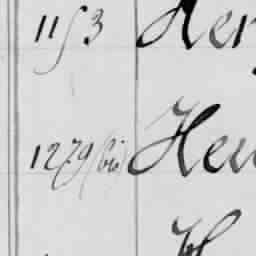 1153 Her
1279 (bis) Hen
H